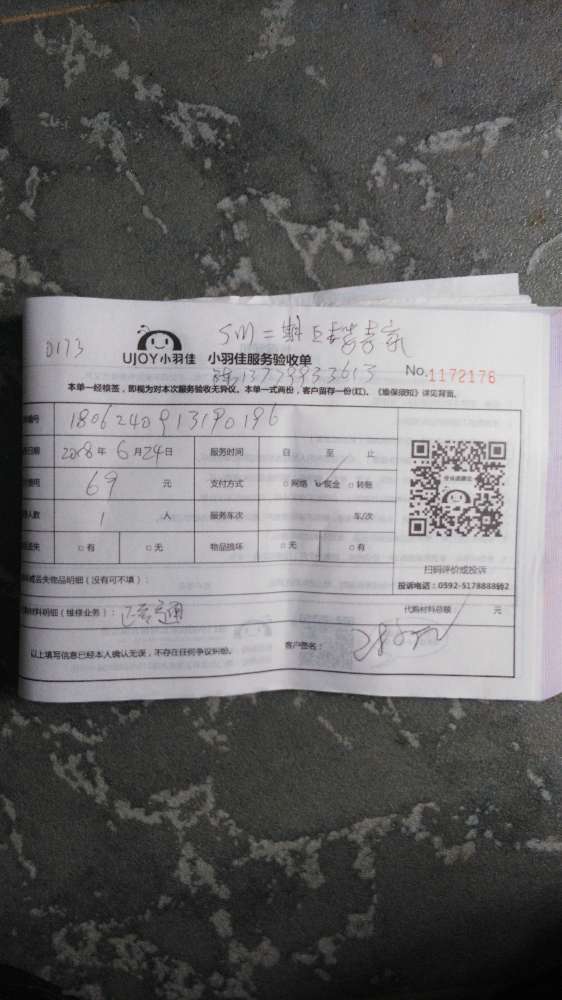 0173
SM二期
UJOY小羽佳 小羽佳服务验收单
13779933613
No.1172176
本单一经核签，即视为对本次服务验收无异议。本单一式两份，客户留存一份(红)。《维保须知》详见背面。
编号 1806240913190196
日期 2018年6月24日 服务时间 自 至 止
费用 69 元 支付方式 □网络 ☑现金 □转账
人数 1 人 服务车次 车/次
丢失 □有 □无 物品损坏 □无 □有
扫码评价或投诉
投诉电话：0592-5178888转2
或丢失物品明细（没有可不填）：
材料明细（维修业务）： 代购材料总额 元
以上填写信息已经本人确认无误，不存在任何争议纠纷。 客户签名：